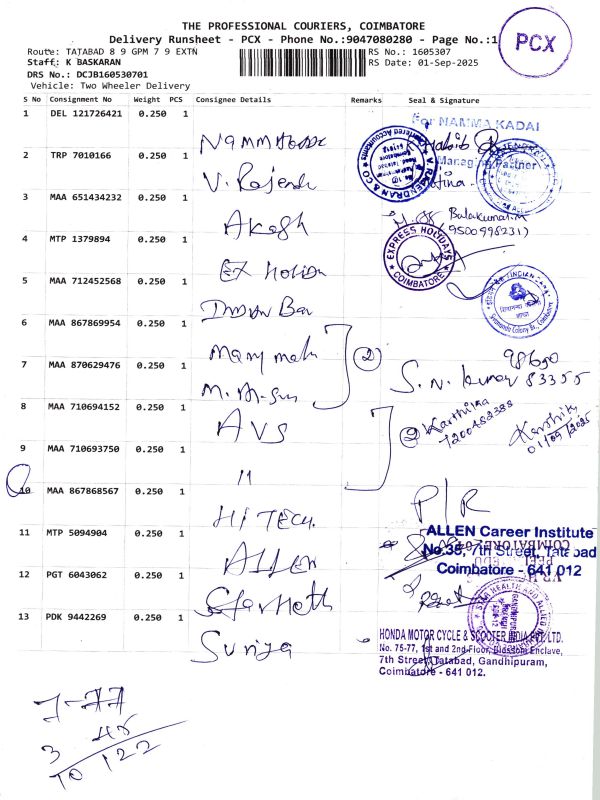 THE PROFESSIONAL COURIERS, COIMBATORE
Delivery Runsheet - PCX - Phone No.:9047080280 - Page No.:1
PCX
Route: TATABAD 8 9 GPM 7 9 EXTN
RS No.: 1605307
Staff: K BASKARAN
RS Date: 01-Sep-2025
DRS No.: DCJB160530701
Vehicle: Two Wheeler Delivery
S No Consignment No Weight PCS Consignee Details Remarks Seal & Signature
1 DEL 121726421 0.250 1
For NAMMA KADAI
Managing Partner
2 TRP 7010166 0.250 1 V. Rajendr
V. RAJENDRAN & CO
Chartered Accountants
3 MAA 651434232 0.250 1 Akash
Balakumar
9500998231)
4 MTP 1379894 0.250 1
EXPRESS HOLIDAYS
COIMBATORE
5 MAA 712452568 0.250 1
6 MAA 867869954 0.250 1
7 MAA 870629476 0.250 1
2
S. N. Kumar
98650
83355
8 MAA 710694152 0.250 1 AVS
9 MAA 710693750 0.250 1 11
2
Karthika
7200482388
Karthik
01/09/2025
10 MAA 867868567 0.250 1 HI TECH.
P/R
11 MTP 5094904 0.250 1 ALLEN
ALLEN Career Institute
No.38, 7th Street, Tatabad
Coimbatore - 641 012
12 PGT 6043062 0.250 1
STAR HEALTH AND ALLIED
13 PDK 9442269 0.250 1 Suriya
HONDA MOTOR CYCLE & SCOOTER INDIA PVT. LTD.
No. 75-77, 1st and 2nd Floor, Blossom Enclave,
7th Street, Tatabad, Gandhipuram,
Coimbatore - 641 012.
3 45
10 122